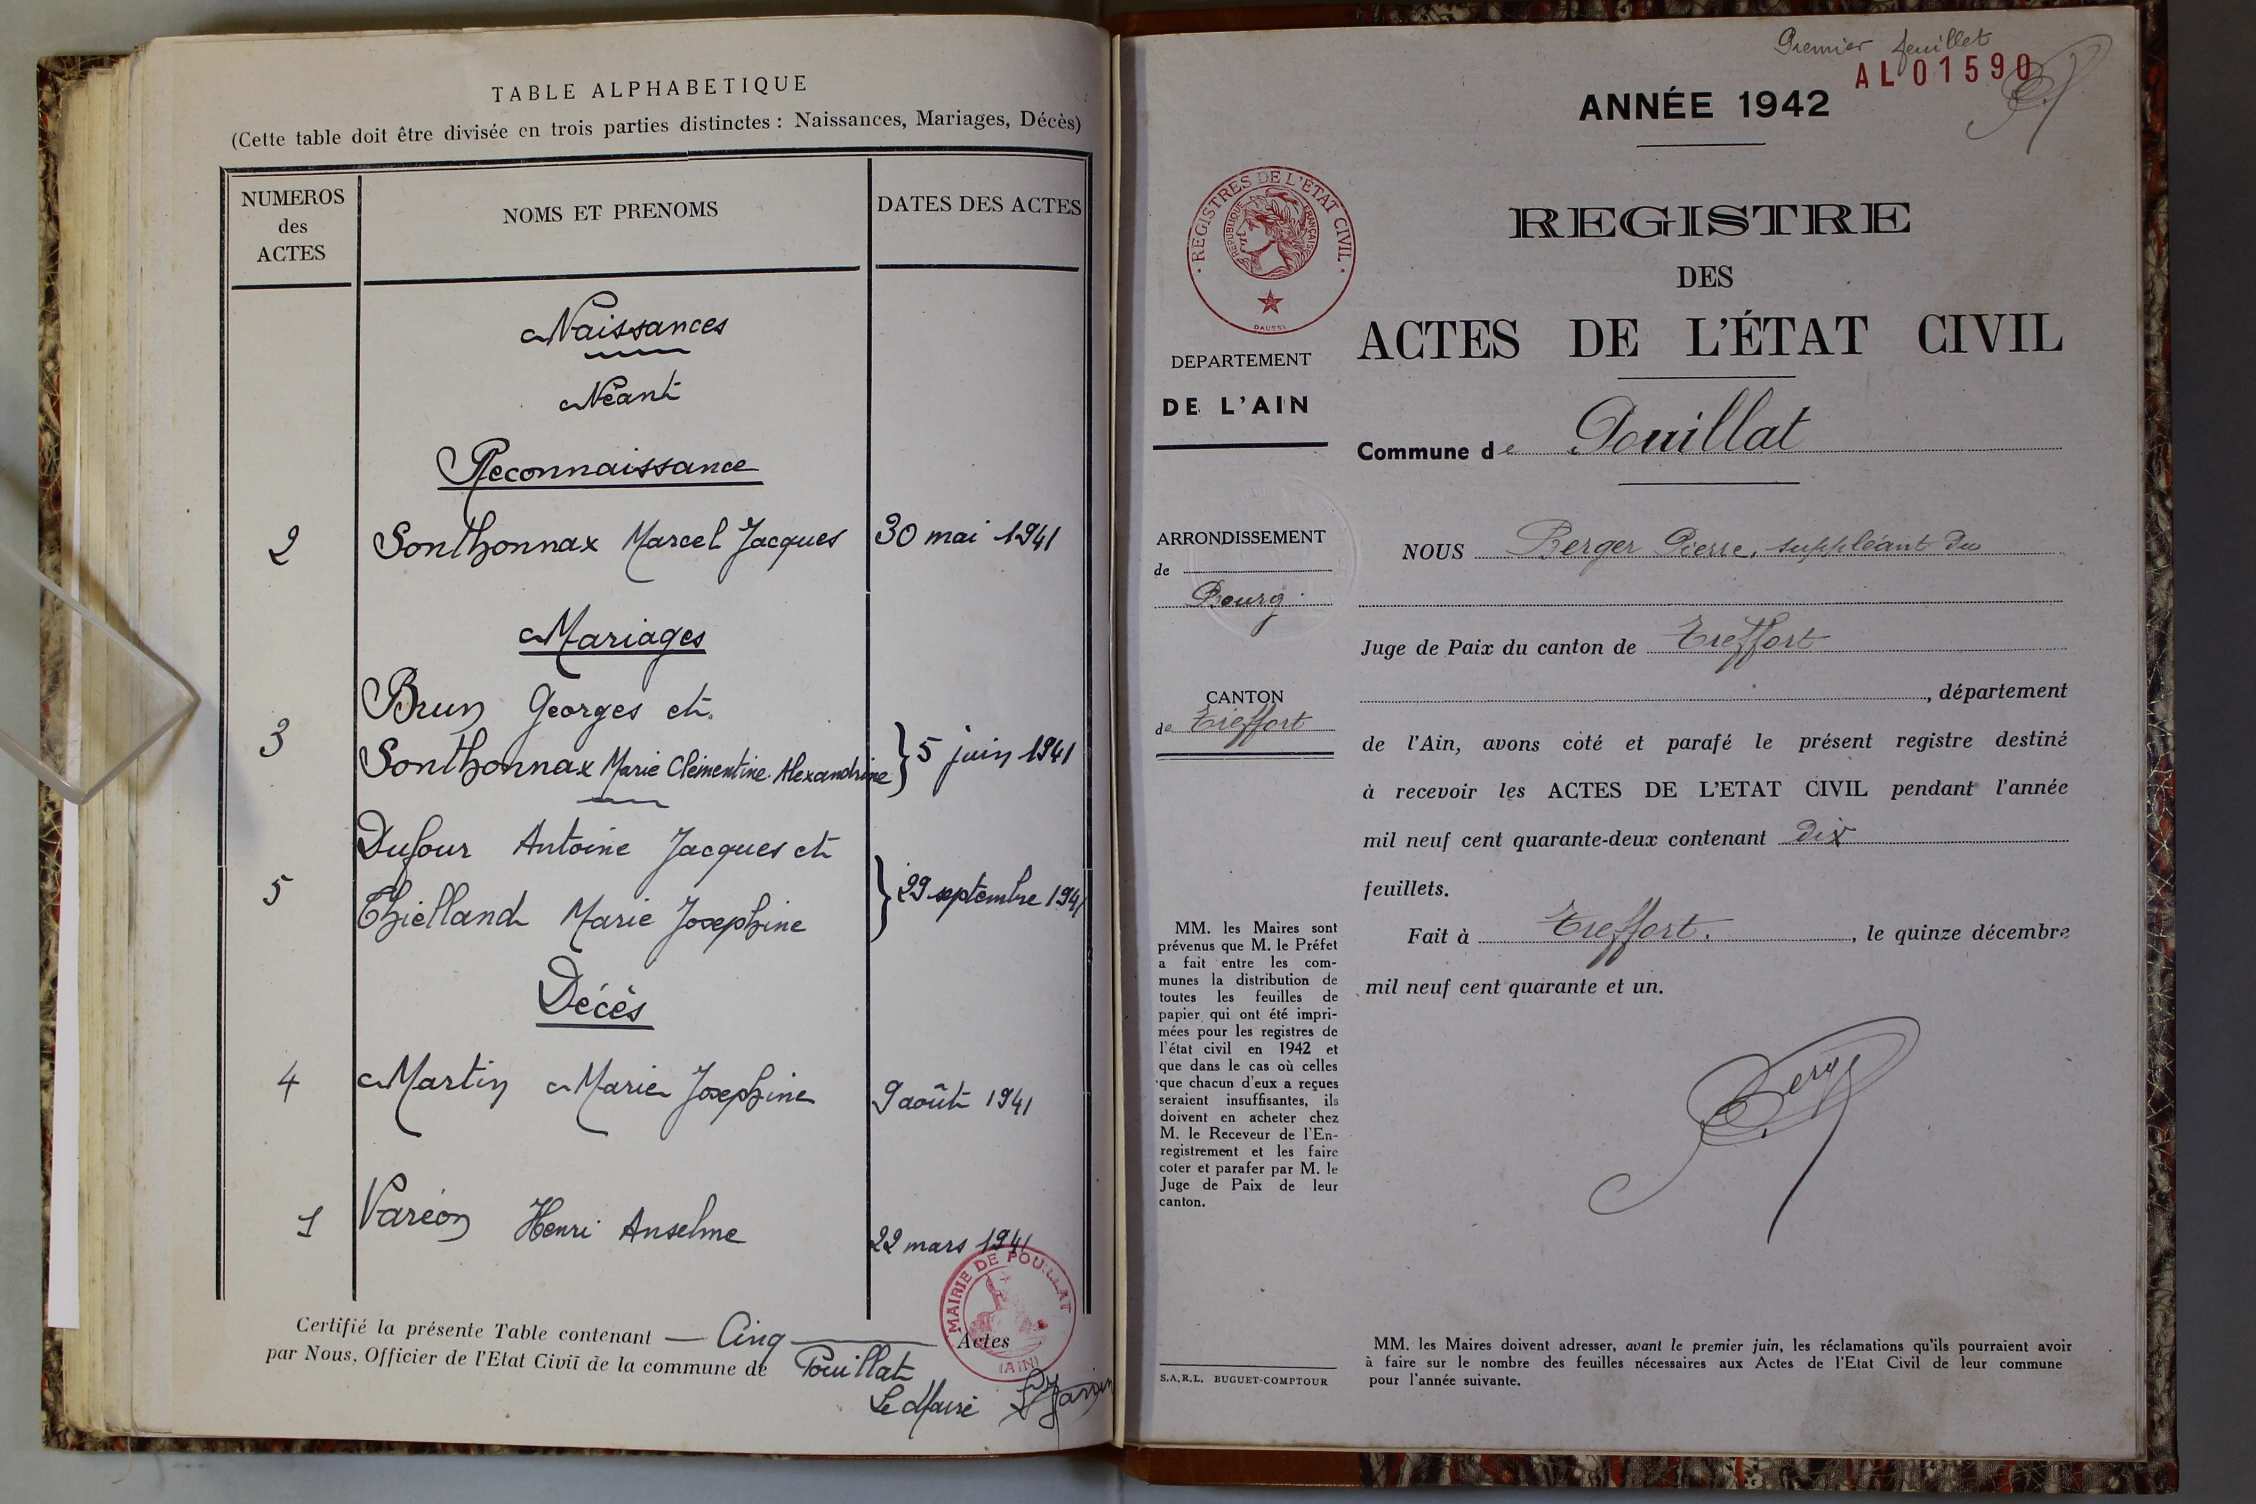 TABLE ALPHABETIQUE
(Cette table doit être divisée en trois parties distinctes : Naissances, Mariages, Décès)
NUMEROS des ACTES
NOMS ET PRENOMS
DATES DES ACTES
Naissances
Néant
Reconnaissance
2 Sonthonnax Marcel Jacques 30 mai 1941
Mariages
Brun Georges et
3 Sonthonnax Marie Clémentine Alexandrine } 5 juin 1941
Dufour Antoine Jacques et
5 Thielland Marie Josephine } 29 septembre 1941
Décès
4 Martin Marie Josephine 9 août 1941
1 Varéon Henri Anselme 22 mars 1941
MAIRIE DE POUILLAT
(AIN)
Certifié la présente Table contenant — Cinq — Actes
par Nous, Officier de l'Etat Civil de la commune de Pouillat
Le Maire
Premier feuillet
AL01590
ANNÉE 1942
REGISTRES DE L'ÉTAT CIVIL
RÉPUBLIQUE FRANÇAISE
REGISTRE
DES
ACTES DE L'ÉTAT CIVIL
DEPARTEMENT
DE L'AIN
Commune de Pouillat
ARRONDISSEMENT
de
Bourg
CANTON
de Treffort
NOUS Berger Pierre, suppléant du
Juge de Paix du canton de Treffort
, département
de l'Ain, avons coté et parafé le présent registre destiné
à recevoir les ACTES DE L'ETAT CIVIL pendant l'année
mil neuf cent quarante-deux contenant dix
feuillets.
Fait à Treffort. , le quinze décembre
mil neuf cent quarante et un.
Berger
MM. les Maires sont
prévenus que M. le Préfet
a fait entre les com-
munes la distribution de
toutes les feuilles de
papier qui ont été impri-
mées pour les registres de
l'état civil en 1942 et
que dans le cas où celles
que chacun d'eux a reçues
seraient insuffisantes, ils
doivent en acheter chez
M. le Receveur de l'En-
registrement et les faire
coter et parafer par M. le
Juge de Paix de leur
canton.
S.A.R.L. BUGUET-COMPTOUR
MM. les Maires doivent adresser, avant le premier juin, les réclamations qu'ils pourraient avoir
à faire sur le nombre des feuilles nécessaires aux Actes de l'Etat Civil de leur commune
pour l'année suivante.